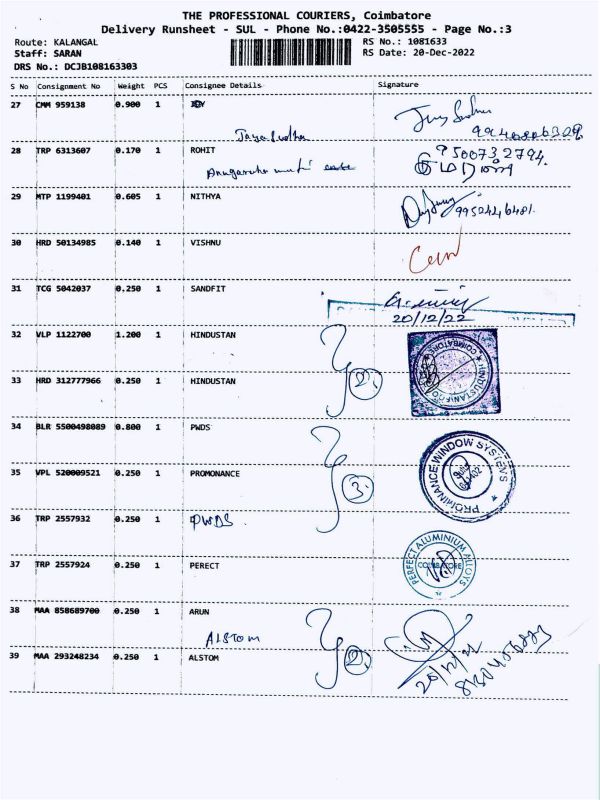 THE PROFESSIONAL COURIERS, Coimbatore
Delivery Runsheet - SUL - Phone No.:0422-3505555 - Page No.:3
Route: KALANGAL
RS No.: 1081633
Staff: SARAN
RS Date: 20-Dec-2022
DRS No.: DCJB108163303
S No Consignment No Weight PCS Consignee Details Signature
27 CMM 959138 0.900 1
Jayasudha
28 TRP 6313607 0.170 1 ROHIT
9500732794.
29 MTP 1199401 0.605 1 NITHYA
9952446481.
30 HRD 50134985 0.140 1 VISHNU
31 TCG 5042037 0.250 1 SANDFIT
20/12/22
32 VLP 1122700 1.200 1 HINDUSTAN
HINDUSTAN
COIMBATORE
33 HRD 312777966 0.250 1 HINDUSTAN
2
34 BLR 5500498089 0.800 1 PWDS
PROMINANCE WINDOW SYSTEMS
35 VPL 520009521 0.250 1 PROMONANCE
3
36 TRP 2557932 0.250 1 PWDS
37 TRP 2557924 0.250 1 PERECT
PERFECT ALUMINIUM ALLOYS
COIMBATORE
38 MAA 858689700 0.250 1 ARUN
ALSTOM
39 MAA 293248234 0.250 1 ALSTOM
2
20/12/22